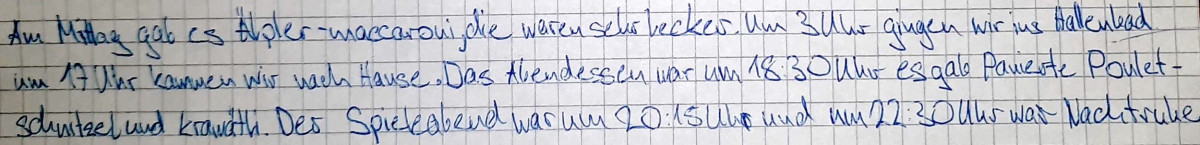 Am Mittag gab es Älpler-maccaroui, die waren sehr lecker. Um 3 Uhr gingen wir ins Hallenbad
um 17 Uhr kammen wir nach Hause. Das Abendessen war um 18:30 Uhr es gab Panierte Poulet-
schnitzel und krawättli. Der Spieleabend war um 20:15 Uhr und um 22:30 Uhr war Nachtruhe